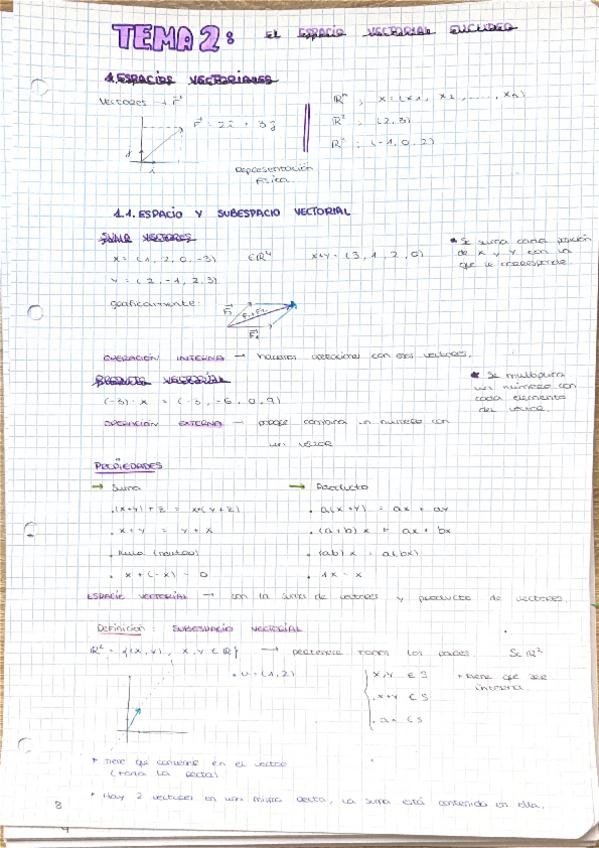 TEMA 2: EL ESPACIO VECTORIAL EUCLIDEO
1. ESPACIOS VECTORIALES
Vectores → F
F = 2i + 3j
Representación
Física
Rⁿ ; x = (x1, x2, ......, xn)
R² ; (2, 3)
R³ ; (-1, 0, 2)
1.1. ESPACIO Y SUBESPACIO VECTORIAL
SUMA VECTORES
x = (1, 2, 0, -3) ∈R⁴ x+y = (3, 1, 2, 0)
y = (2, -1, 2, 3)
* Se suma cada posición
de x y y con la
que le corresponde
Gráficamente:
OPERACIÓN INTERNA → hacemos operaciones con dos vectores.
PRODUCTO VECTORIAL
(-3)·x = (-3, -6, 0, 9)
* Se multiplica
un número con
cada elemento
del vector.
OPERACIÓN EXTERNA → porque combina un número con
un vector
PROPIEDADES
→ Suma
. (x+y)+z = x+(y+z)
. x+y = y+x
. Nulo (neutro)
. x+(-x) = 0
→ Producto
. a(x+y) = ax + ay
. (a+b)x = ax + bx
. (ab)x = a(bx)
. 1x = x
ESPACIO VECTORIAL → con la suma de vectores y producto de vectores.
Definición: SUBESPACIO VECTORIAL
R² = {(x,y), x,y ∈ R} → pertenece todos los pares. S∈R²
. u = (1,2)
x,y ∈ S
x+y ∈ S
∈ S
* tiene que ser
interna
* Tiene que convertirse en el vector
(toda la recta)
* Hay 2 vectores en una misma recta, la suma está contenida en ella.
8